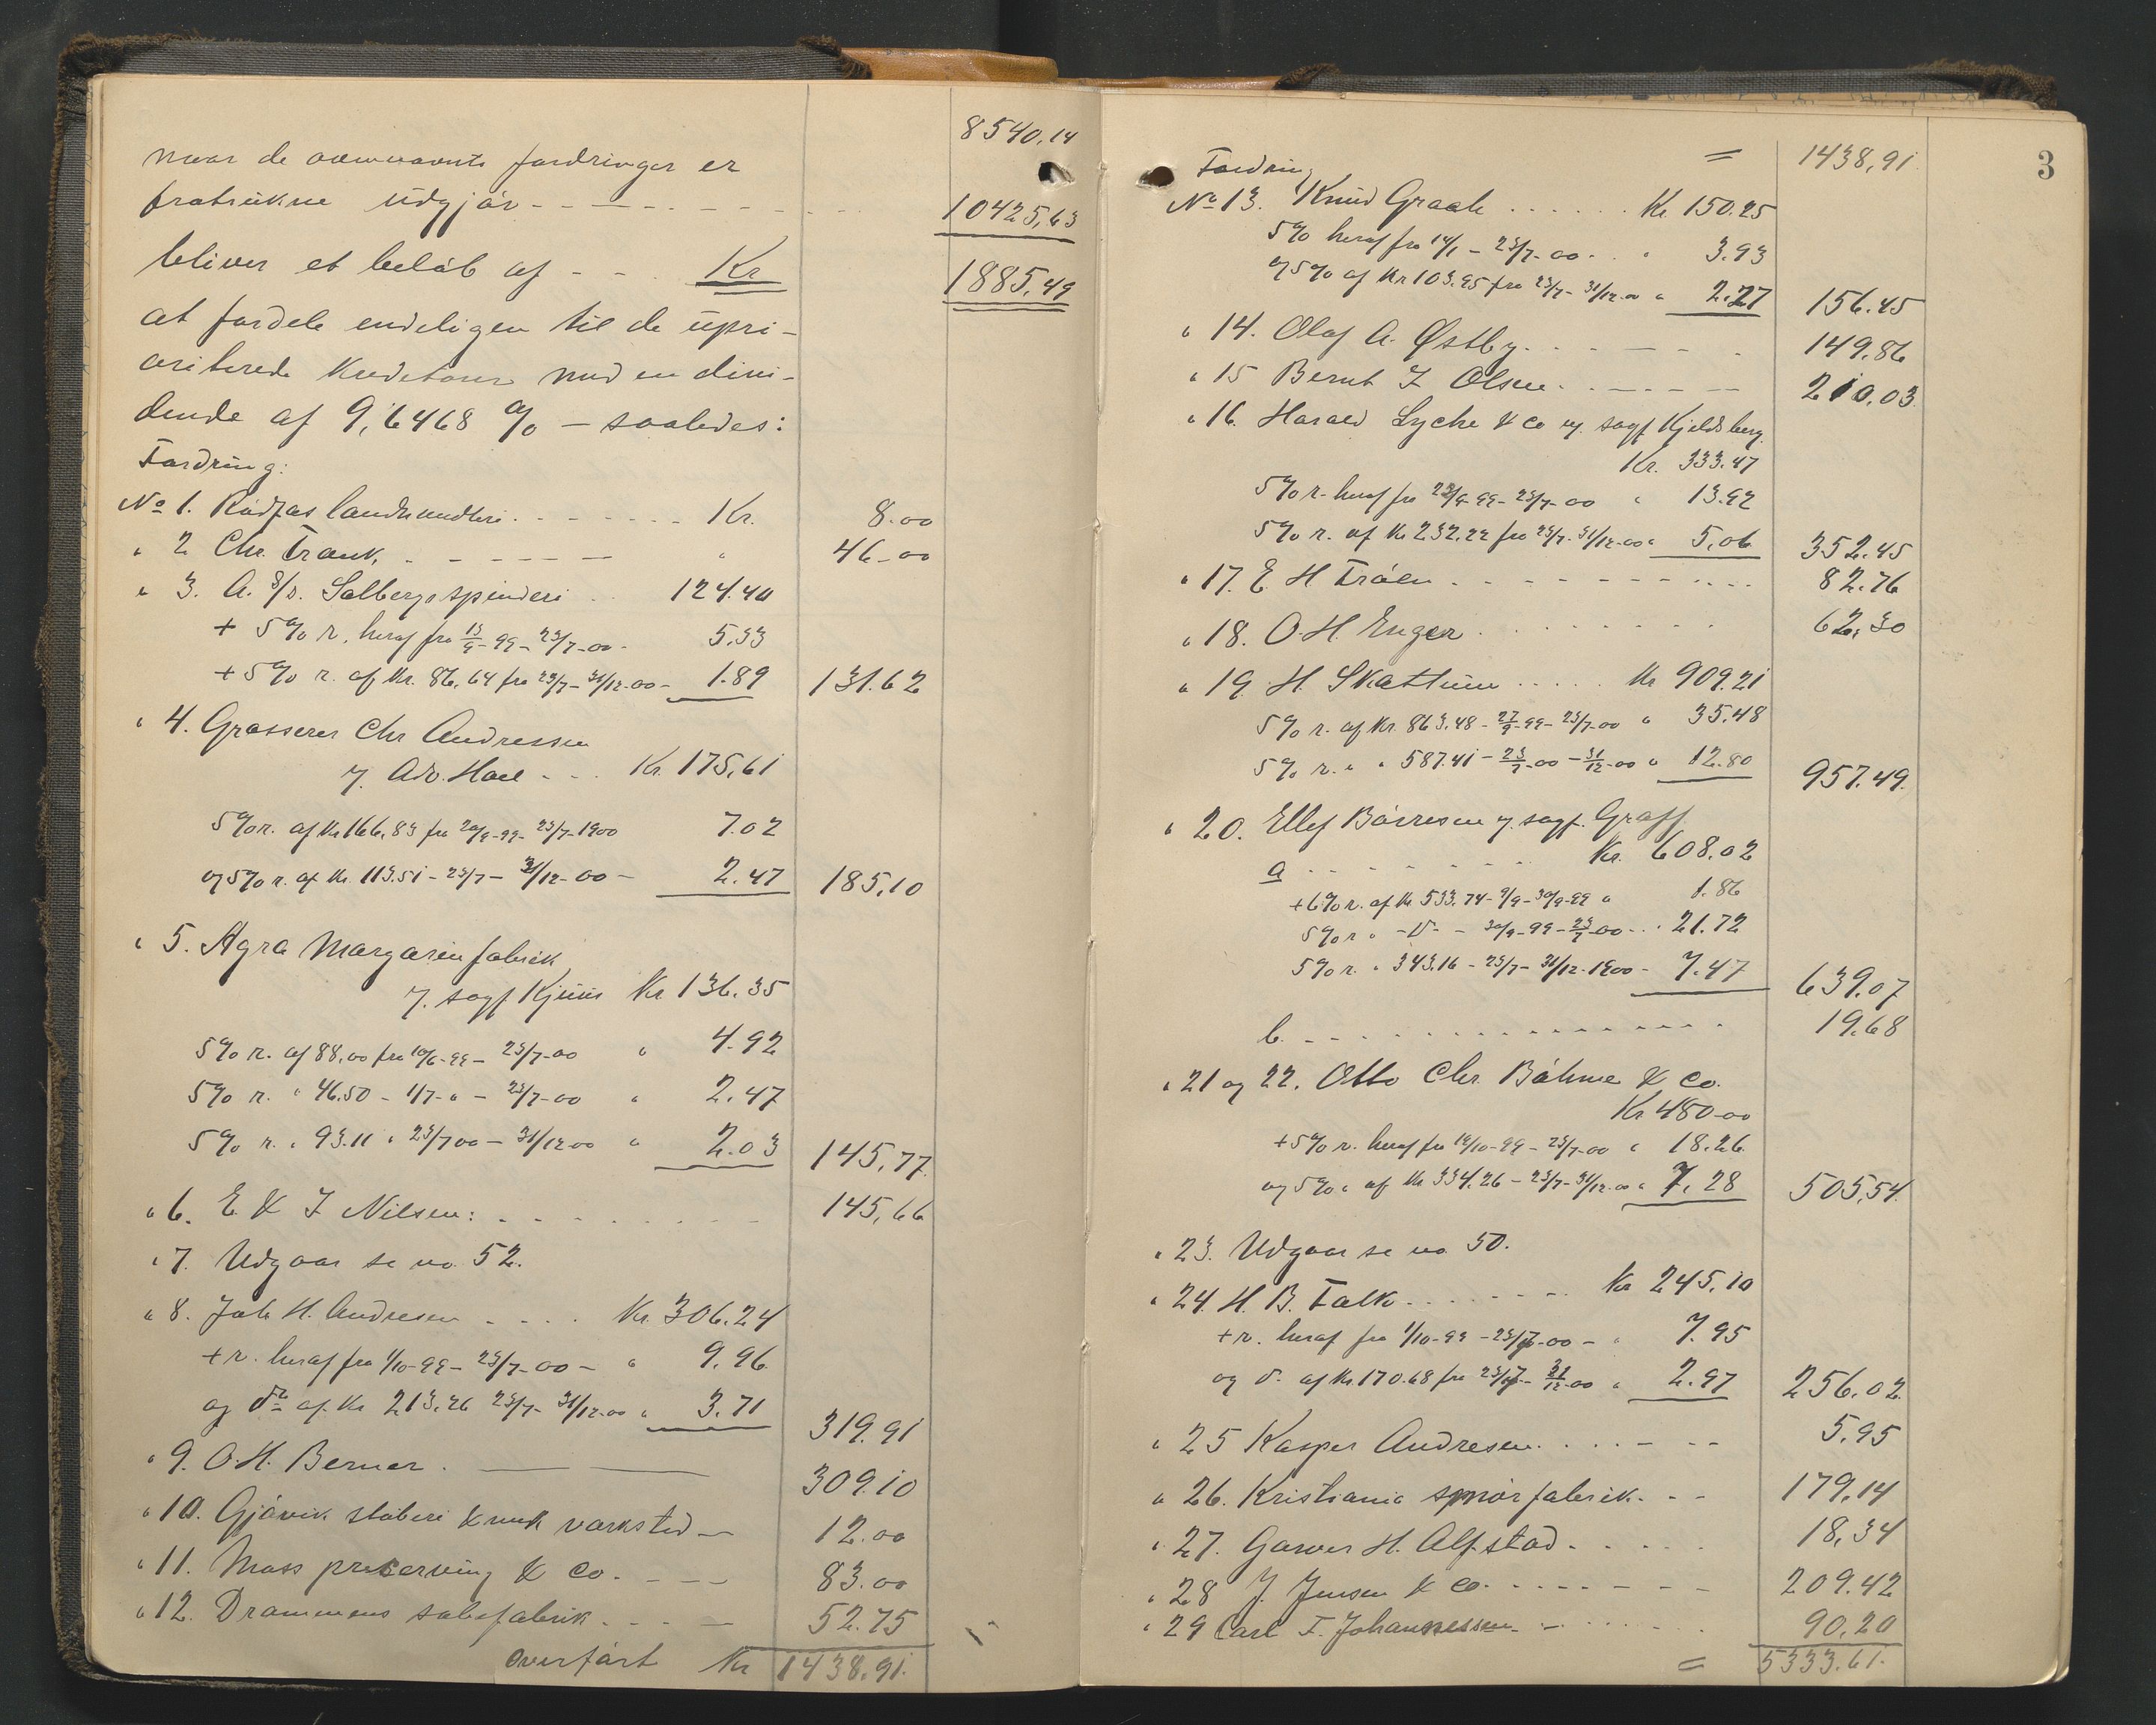 8540.14
naar de ovennævnte fordringer er
fratrukne udgjør - - - 10425,63
bliver et beløb af - - Kr 1885,49
at fordele endeligen til de upri-
oriterede kreditorer med en divi-
dende af 9,6468 % — saaledes:
Fordring:
No 1. Rødfos landhandleri - - - Kr. 8.00
" 2 Chr. Frank, - - - " 46-00
" 3. A. S/S. Solbergs spinderi 124.40
+ 5% r. heraf fra 13/9-99-23/7-00- 5.33
+ 5% r. af Kr. 86,64 fra 23/7-31/12-00- 1.89 131.62
" 4. Grosserer Chr Andressen
v. Adv. Hall - - - Kr. 175,61
5% r. af Kr 166,83 fra 20/9-99-23/7-1900 7.02
og 5% r. af Kr. 113.51-23/7-31/12-00- 2.47 185,10
" 5. Agra Margarinfabrik
v. sagf Kjuus Kr 136.35
5% r. af 88,00 fra 10/6-99-23/7-00 " 4.92
5% r. " 46.50 - 1/7-" - 23/7-00 " 2.47
5% r. " 93.11 " 23/7 00 - 31/12 00 " 2.03 145,77.
" 6. E & I Nilsen: - - - 145,66
" 7. Udgaar se no. 52.
" 8. Joh H. Andresen - - - Kr. 306.24
+ r. heraf fra 1/10-99-23/7-00- " 9.96
og do af Kr 213,26 23/7-31/12-00 " 3.71 319.91
" 9. O. H. Berner. — — 309.10
" 10. Gjøvik støberi & mek værksted — 12.00
" 11. Moss preserving & Co. - - - 83.00
" 12. Drammens sæbefabrik - - - 52.75
Overført Kr 1438.91.
3
Fordring = 1438,91
No 13. Knud Graah ...... Kr 150.25
5% heraf fra 14/1-23/7-00.. " 3.93
og 5% af Kr 103.95 fra 23/7-31/12-00 " 2.27 156.45
" 14. Olaf A. Østby. - - - 149,86
" 15 Bernt I. Olsen. - - - 210.03
" 16. Harald Lyche & Co v. sagf Kjeldsberg.
Kr. 333.47
5% r. heraf fra 23/9-99-23/7-00 " 13.92
5% r. af Kr 232.22 fra 23/7-31/12-00 " 5,06 352.45
" 17. E H Frøen - - - 82.76
" 18. O. H. Enger - - - 62,30
" 19. H. Skattum ..... Kr 909.21
5% r. af Kr. 863.48-27/9-99-23/7-00 " 35.48
5% r. " " 587.41-23/7-00-31/12-00 " 12.80 957.49.
" 20. Ellef Børresen v. sagf. Graff
a - - - Kr. 608.02
+6% r. af Kr 533,74-9/9-30/9-99 " 1.86
5% r " -D- - 30/9-99-23/7-00... 21.72
5% r. " 343.16-23/7-31/12-1900- 7.47 639.07
b. - - - 19.68
" 21 og 22. Otto Chr. Bøhme & Co.
Kr 480-00
+5% r. heraf fra 19/10-99-23/7-00 " 18.26
og 5% " af Kr 334.26-23/7-31/12-00 " 7.28 505,54.
" 23. Udgaar se no 50.
" 24. H. B. Falk ....... Kr 245,10
+ r. heraf fra 1/10-99-23/7-00- " 7.95
og d. af Kr. 170.68 fra 23/7-31/12-00 " 2.97 256.02
" 25 Kasper Andresen .... - - 5.95
" 26. Kristiania spoorfabrik. - - 179,14
" 27. Garver H. Alfstad. .... 18,34
" 28 J. Jensen & Co. - - - 209.42
" 29 Carl F. Johannessen - ... 90.20
= 5333.61.